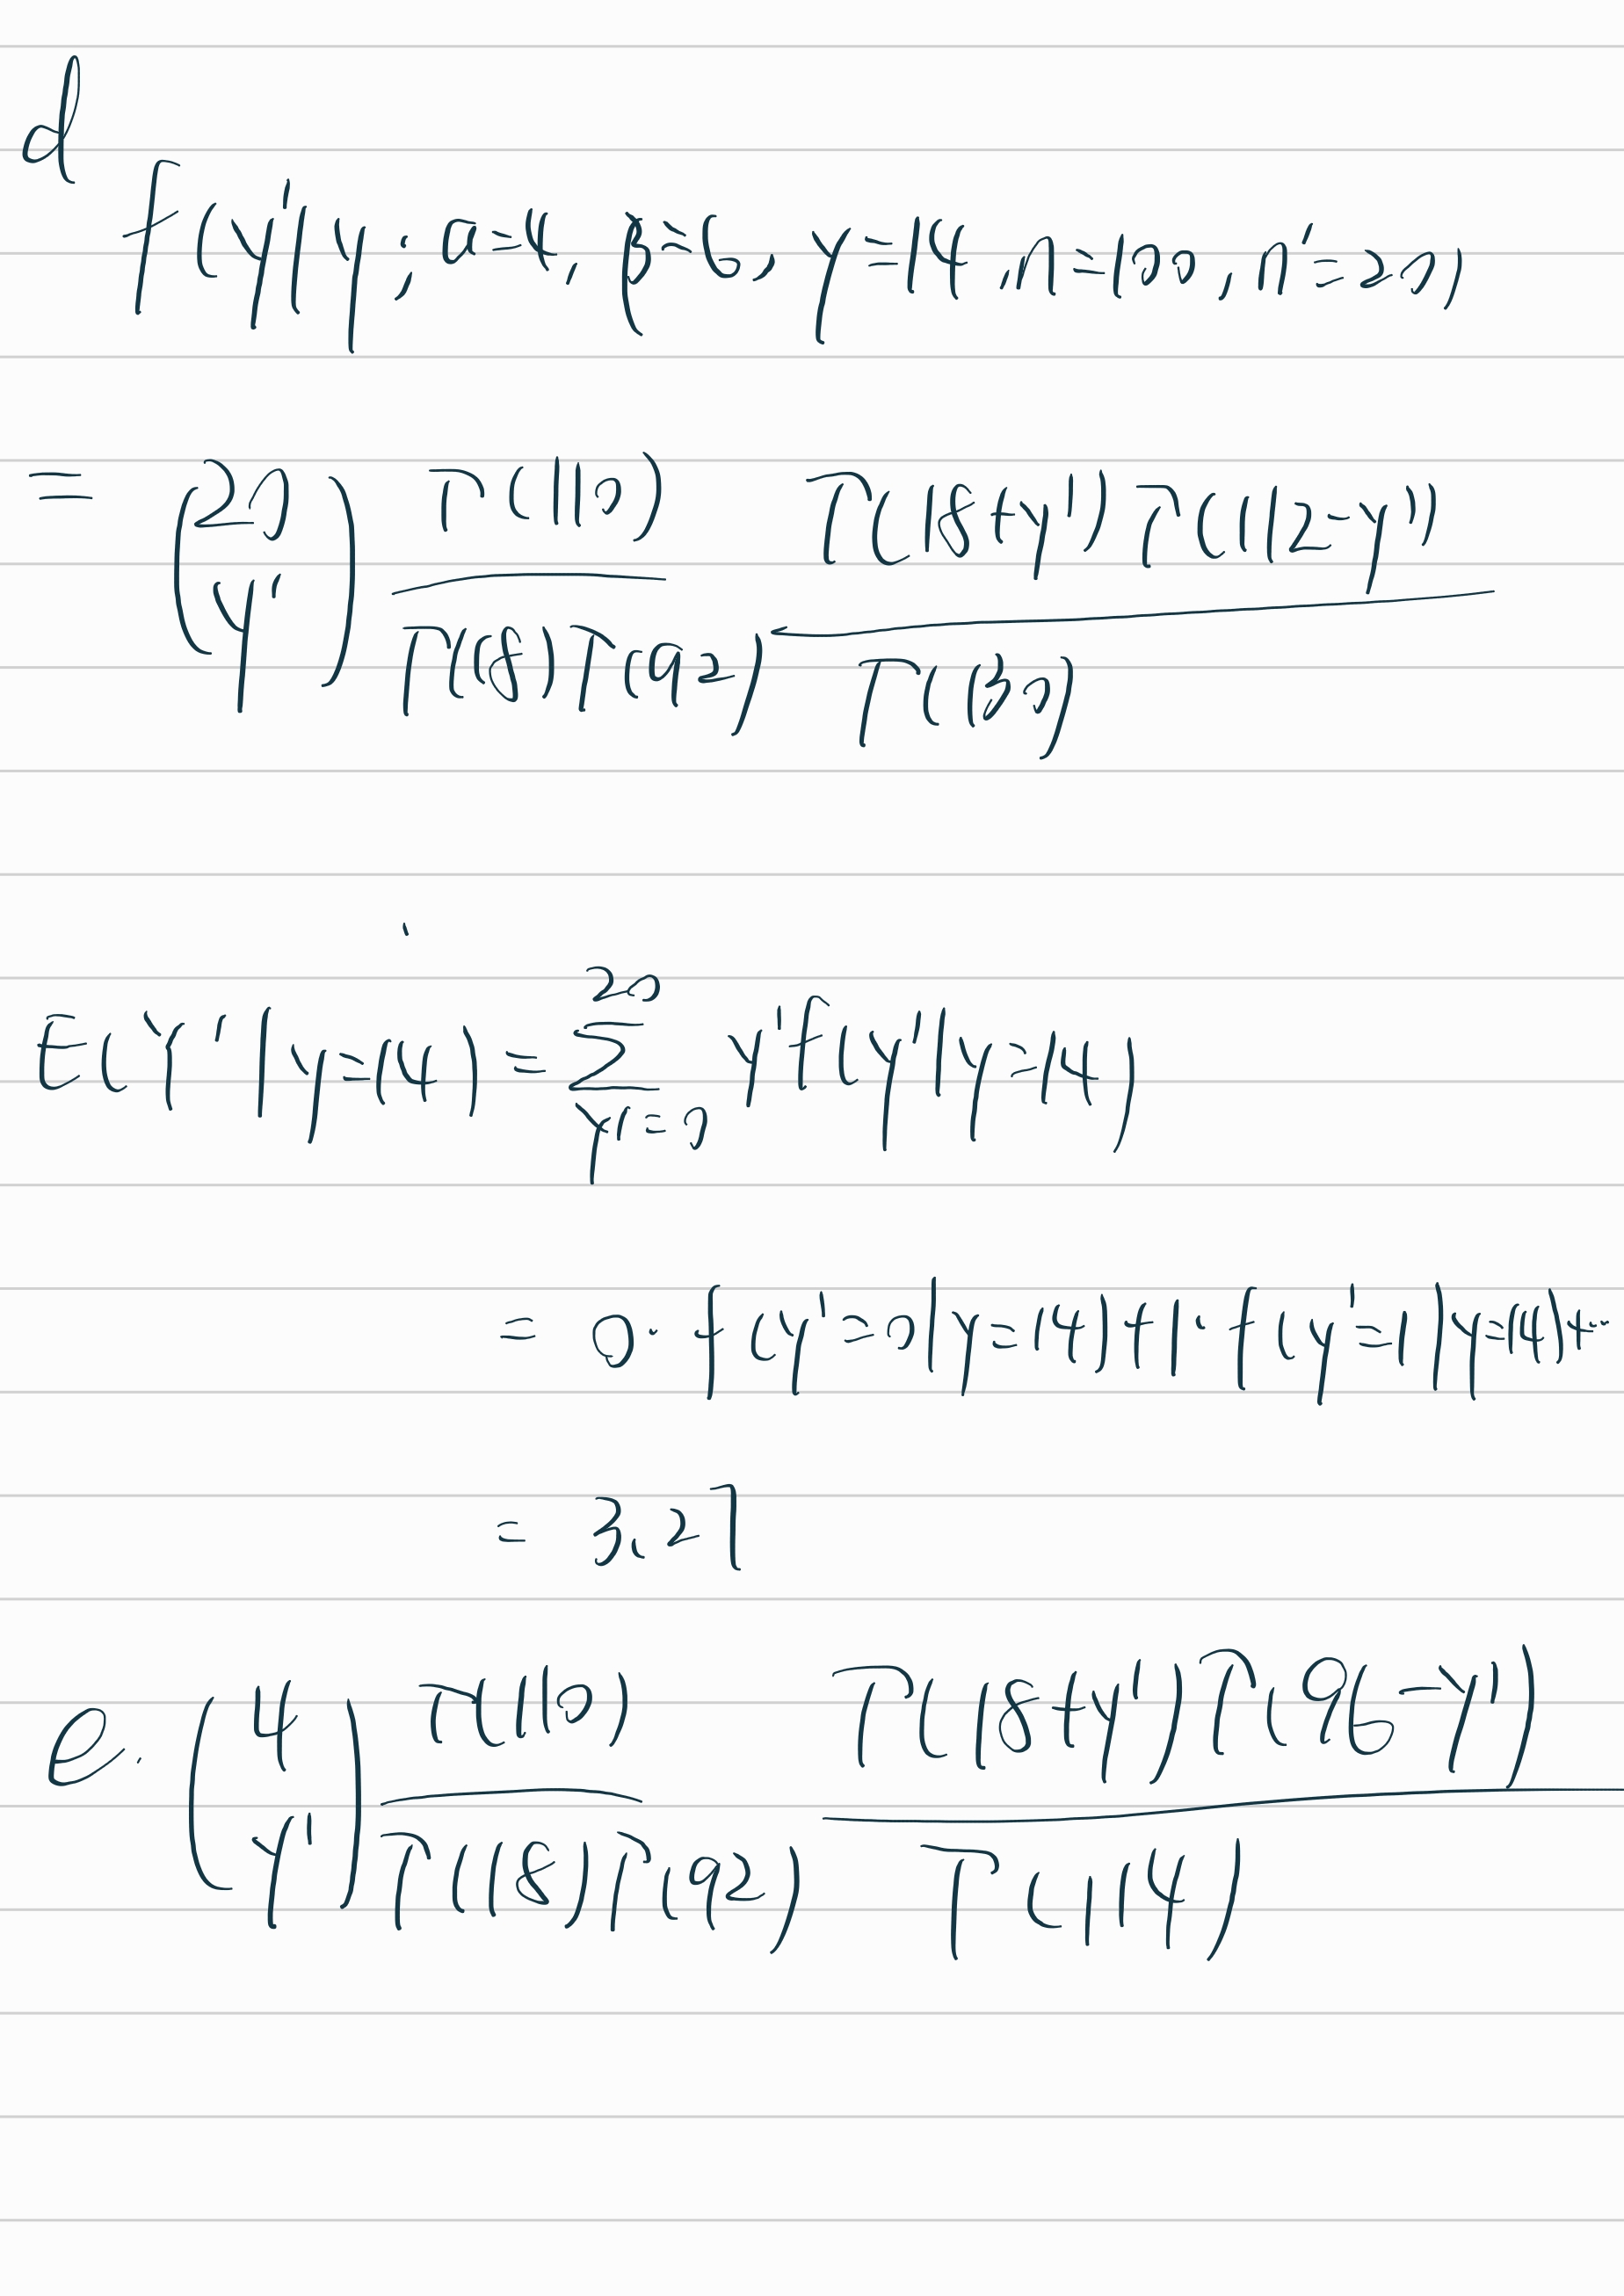 d
f(y'|y; a=4, β=6, y=14, n=100, n'=20)
= (20 y') Γ(110) / Γ(18)Γ(92) Γ(18+y')Γ(112-y') / Γ(130)
E(Y'|y=14) = Σ_{y'=0}^{20} y' f(y'|y=14)
= 0· f(y'=0|y=14)+1· f(y'=1|y=14)+··
= 3.27
e. (4 y') Γ(110) / Γ(18)Γ(92) Γ(18+y')Γ(96-y') / Γ(114)